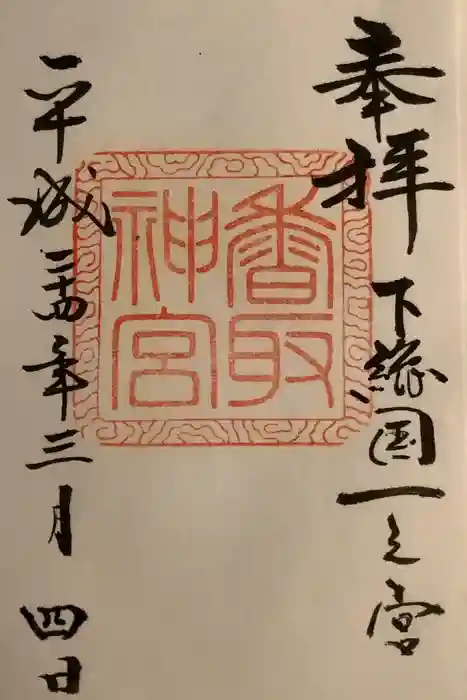 奉拝
下総国一之宮
香取
神宮
平成二十四年三月四日